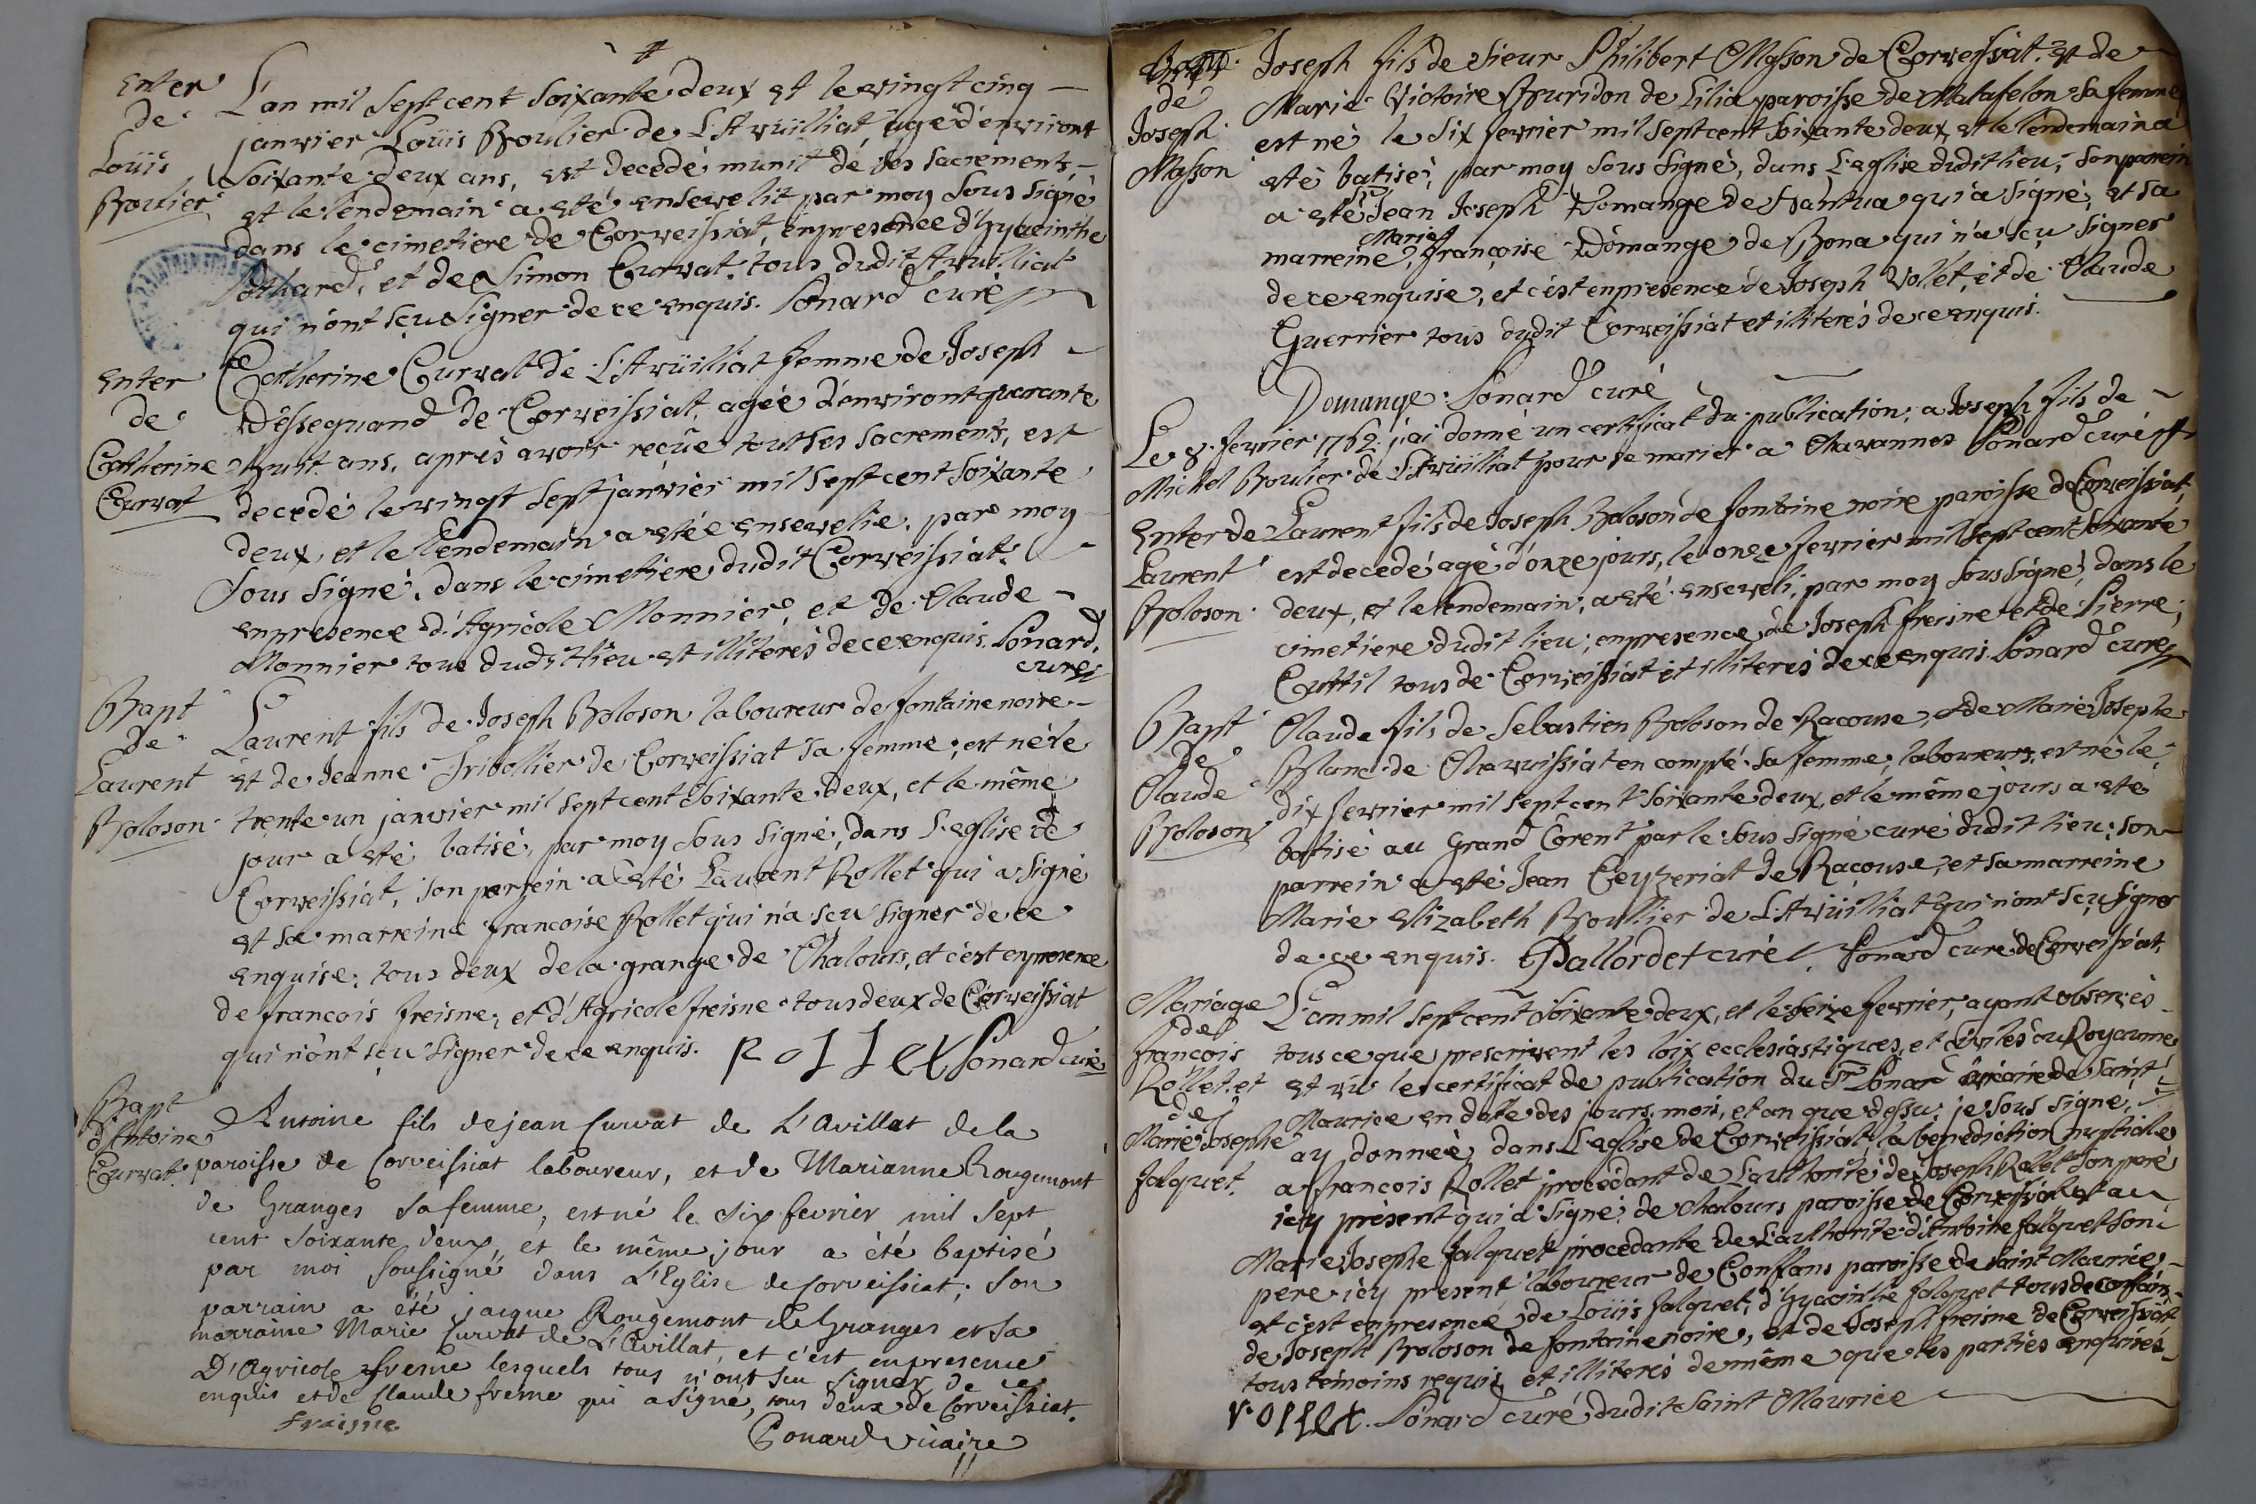 Enter
de
Loüis
Boulier
L'an mil sept cent soixante deux et le vingt cinq
janvier Loüis Boulier de L'Avüilliat agé d'environt
soixante deux ans, est decedé munit dé ses sacrements
et le lendemain a eté ensevelit par moy sous signé
dans le cimetiere de Corveissiat, en presence d'hyacinthe
et de Simon Curvat, tous dudit Avuilliat
qui n'ont sçu signer de ce enquis. Ponard curé
Enter
de
Catherine
Curvat
Catherine Curvat de L'Avüilliat femme de Joseph
Dessequand de Corveissiat, agée d'environt quarante
huit ans, après avoir reçûe tout ses sacrements, est
decedé le vingt sept janvier mil sept cent soixante
deux, et le lendemain a etée ensevelie, par moy
sous signé, dans le cimetiere dudit Corveissiat.
en presence d'Agricole Monnier, et de Claude
Monnier tous dudit lieu et illiterés de ce enquis. Ponard
curé
Bapt
de
Laurent
Boloson
Laurent fils de Joseph Boloson laboureur de fontaine noire
et de Jeanne Tribollier de Corveissiat sa femme, est né le
trente un janvier mil sept cent soixante deux, et le même
jour a eté batisé, par moy sous signé, dans l'eglise de
Corveissiat, son parrein a eté Laurent Rollet qui a signé
et sa marreine francoise Rollet qui n'a sçu signer de ce
enquise, tous deux de la grange de Chalours, et c'est en presence
de francois freisne, et d'Agricole freisne tous deux de Corveissiat
qui n'ont sçu signer de ce enquis. Rollet Ponard curé
Bapt
d'Antoine
Curvat
Antoine fils de jean Curvat de L'Avillat de la
paroisse de Corveissiat laboureur, et de Marianne Rougemont
de Granges sa femme, est né le six fevrier mil sept
cent soixante deux, et le même jour a été baptisé
par moi soussigné dans L'Eglise de Corveissiat; son
parrain a été jacque Rougemont de Granges et sa
marraine Marie Curvat de L'Avillat, et c'est en presence
D'Agricole frerne lesquels tous n'ont sçu signer de ce
enquis et de Claude frerne qui a signé, tous deux de Corveissiat.
fraisne
Gonard vicaire
Bapt
de
Joseph
Masson
Joseph fils de sieur Philibert Masson de Corveissiat, et de
Marie Victoire Buridon de Lilia paroisse de Matafelon sa femme
est né le six fevrier mil sept cent soixante deux et le lendemain a
eté batisé, par moy sous signé, dans l'eglise dudit lieu, son parein
a eté Sr Jean Joseph Domange de Nantua qui a signé, et sa
marreine Marie françoise Domange de Bona qui n'a sçu signer
de ce enquise, et c'est en presence de Joseph Vollet, et de Claude
Guerrier tous dudit Corveissiat et iliterés de ce enquis.
Domange. Ponard curé
Le 8. fevrier 1762. j'ai donné un certificat du publication, a Joseph fils de
Michel Boulier de L'Avüilliat pour se marier a Chavannes Ponard curé
Enter de
Laurent
Boloson
Laurent fils de Joseph Boloson de fontaine noire paroisse de Corveissiat,
est decedé agé d'onze jours, le onze fevrier mil sept cent soixante
deux, et le lendemain, a eté enseveli, par moy sous signé, dans le
cimetiere dudit lieu, en presence de Joseph freisne et de Pierre
Cuttil tous de Corveissiat et illiterés de ce enquis. Ponard curé
Bapt
de
Claude
Boloson
Claude fils de Sebastien Boloson de Racouse, et de Marie Josephe
Blanc de Chavuissiat en comté sa femme, laboureurs, est né le
dix fevrier mil sept cent soixante deux, et le même jours a eté
batisé au grand Corent par le sous signé curé dudit lieu, son
parrein a eté Jean Ceyzeriat de Racouse, et sa marreine
Marie Elizabeth Boullier de L'Avüilliat qui n'ont sçu signer
de ce enquis. Pallordet curé. Ponard curé de Corveissiat.
Mariage
de
francois
Rollet et
de
Marie Josephe
Jalquet.
L'an mil sept cent soixante deux, et le seize fevrier, ayant observés
tous ce que prescrivent les loix ecclesiastiques, et civiles du Royaume
et vû le certificat de publication du Sr Ponar vicaire de saint
Maurice en datte des jours, mois, et an que dessu, je sous signé,
ay donnée dans L'eglise de Corveissiat la benediction nuptiale
a francois Rollet procedant de L'authorité de Joseph Rollet son pere
icy present qui a signé de Chalours paroisse de Corveissiat et a
Marie Josephe Jalquet procedante de l'authorité d'Antoine Jalquet son
pere icy present laboureur de Conflans paroisse de saint Maurice,
et c'est en presence de Loüis Jalquet, d'hyacinthe Jalquet tous de conflans
de Joseph Boloson de fontaine noire, et de Joseph freisne de Corveissiat
tous temoins requis et illiterés de même que les parties enquises.
rollet. Ponard curé dudit saint Maurice